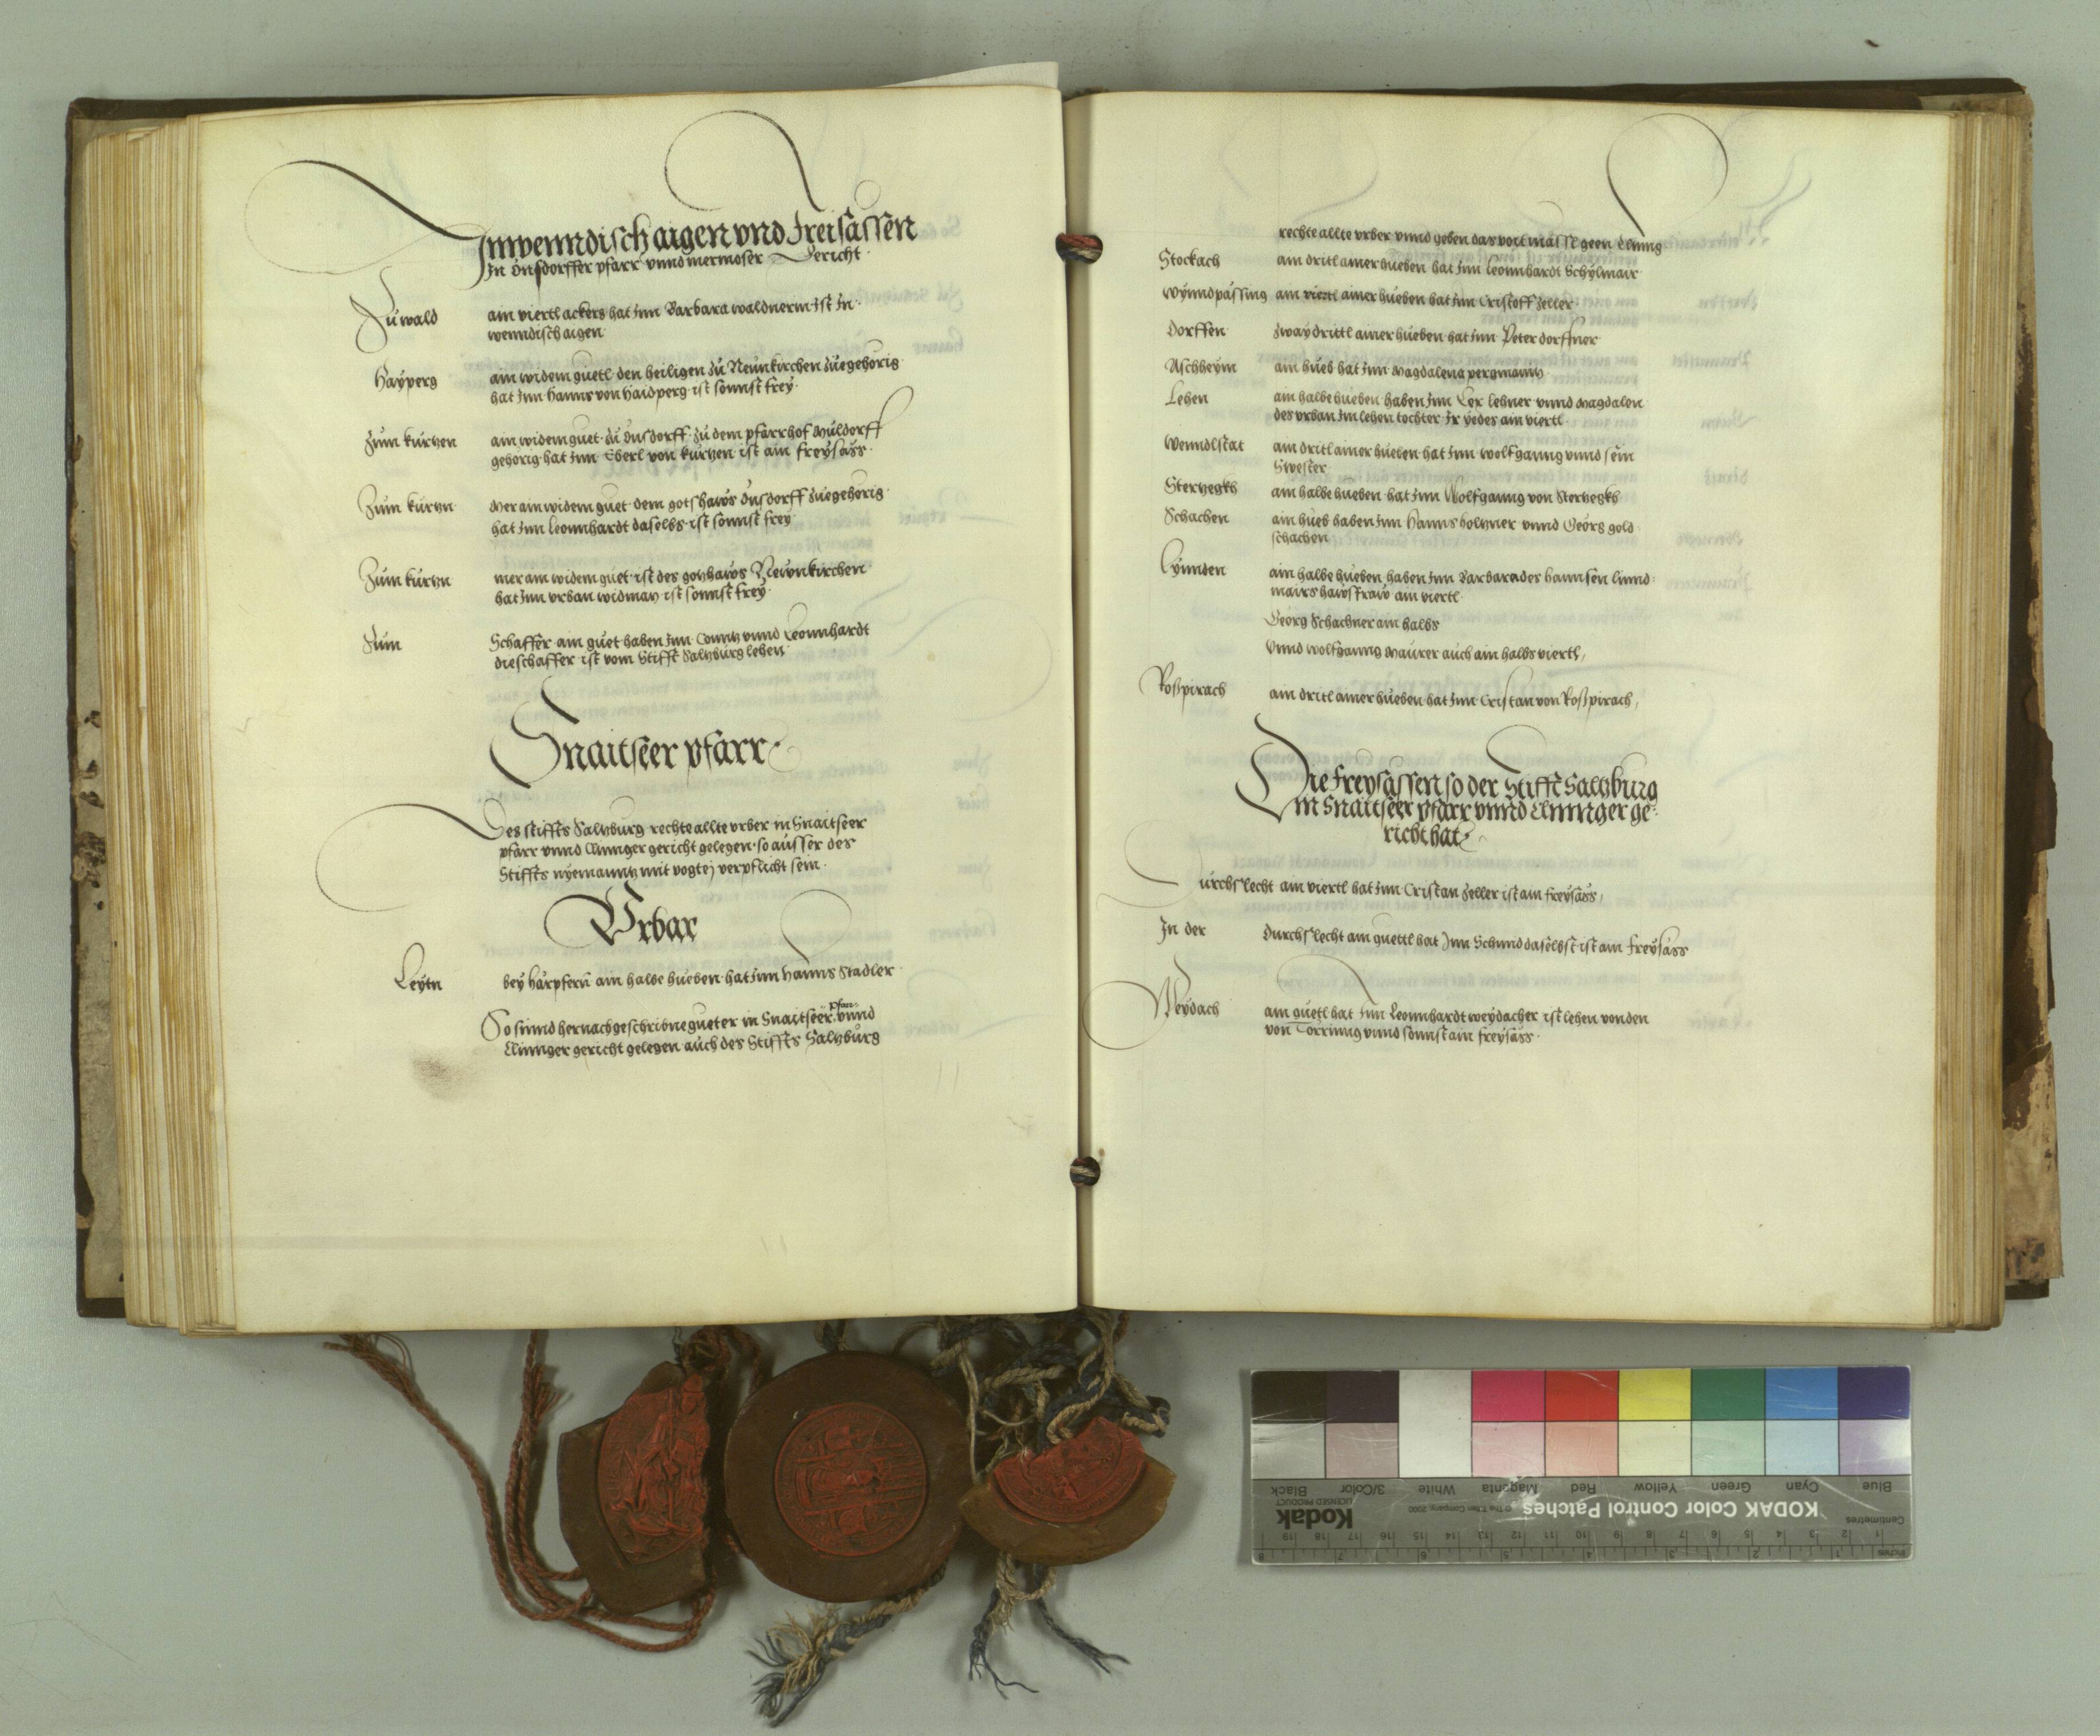 Inwenndisch aigen vnd Freisässen
In Önsdorffer pfarr vnnd mermoser Gericht
Zu wald ain viertl ackers hat Inn Barbara waldnerin Ist In
wenndisch aigen
Hayperg ain widem guetl den heiligen zu Neunkirchen zuegehorig
hat Inn Hanns von Haidperg ist sonnst frey
Zum kurtzen ain widem guet zu Önsdorff zu dem pfarrhof Müldorff
gehorig hat Inn Eberl von kurtzen ist ain freysäss
Zum kurtzn Mer ain widem guet dem gotshaws Önsdorff zuegehorig
hat Inn Leonnhardt daselbs ist sonnst frey
Zum kurtzn mer ain widem guet ist des gotzhaws Newnkirchen
hat Inn vrban widman ist sonnst frey
Zum Schaffer ain guet haben Inn Conntz vnnd Leonnhardt
die schaffer ist vom Stifft Saltzburg lehen
Snaitseer pfarr
Des stiffts Saltzburg rechte allte vrber in Snaitseer
pfarr vnnd Clinger gericht gelegen so ausser des
Stiffts nyemanntz mit vogtej verpflicht sein
Vrbar
Leytn bey harpfern ain halbe hueben hat Inn Hanns Stadler
So sinnd hernachgeschribne gueter in Snaitseer pfarr vnnd
Clinnger gericht gelegen auch des Stiffts Saltzburg
rechte allte vrber vnnd geben das voitmässl geen Clinng
Stockach ain dritl ainer hueben hat Inn Leonnhardt Schylmair
Wynndpässing ain viertl ainer hueben hat Inn Cristoff Zeller
Dorffen zway drittl ainer hueben hat Inn Peter dorffner
Aschheym ain hueb hat Inn Magdalena pergmanin
Lehen ain halbe hueben haben Inn Lex lehner vnnd Magdalen
des vrban Im lehen tochter Ir yedes ain viertl
Wenndlstat ain dritl ainer hueben hat Inn wolfganng vnnd sein
Swester
Stertzegkh ain halbe hueben hat Inn Wolfganng von Stertzegkh
Schachen ain hueb haben Inn Hanns holtzner vnnd Georg gold
schachen
Lynnden ain halbe hueben haben Inn Barbara des hannsen linnd
mairs hawsfraw ain viertl
Georg Schachner ain halbs
Vnnd wolfganng Maurer auch ain halbs viertl
Roßpirach ain dritl ainer hueben hat Inn Cristan von Roßpirach
Die freysässen so der Stifft Saltzburg
in Snaitseer pfarr vnnd Clinnger ge
richt hat
Durchslecht ain viertl hat Inn Cristan Zeller ist ain freysäss
In der durchslecht ain guettl hat Inn Schmid daselbst ist ain freysäss
Weydach ain guetl hat Inn Leonnhardt weydacher ist lehen von den
von Törrinng vnnd sonnst ain freysäss
Inches
Centimetres
KODAK Color Control Patches
© The Tiffen Company, 2000
Kodak
LICENSED PRODUCT
Blue Cyan Green Yellow Red Magenta White 3/Color Black
1 2 3 4 5 6 7 8 9 10 11 12 13 14 15 16 17 18 19
1 2 3 4 5 6 7 8